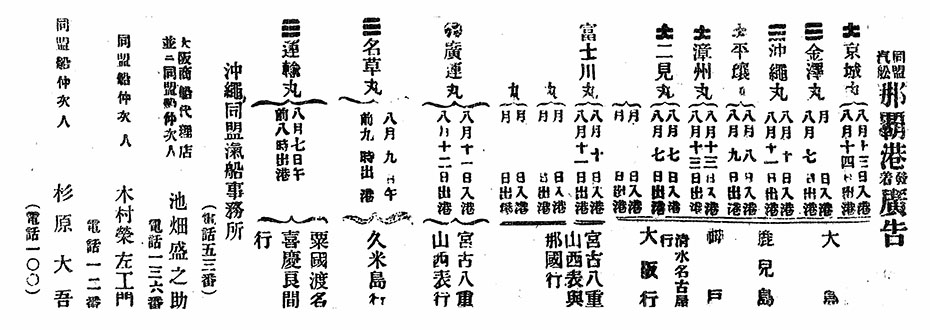 同盟汽舩那覇港發着廣告
京城丸 八月十三日入港 八月十四日出港
金澤丸 月 日入港 八月七日出港
沖繩丸 八月十日入港 八月十一日出港
平壤丸 八月八日入港 八月九日出港
漳州丸 八月十三日入港 八月十三日出港
二見丸 八月七日入港 八月七日出港
大島
鹿兒島
神戸
清水名古屋行
大阪行
富士川丸 八月十日入港 八月十一日出港
宮古八重山西表與那國行
丸 月 日入港 月 日出港
丸 月 日入港 月 日出港
廣運丸 八月十一日入港 八月十二日出港
宮古八重山西表行
名草丸 八月九日午前九時出港
久米島行
運輸丸 八月七日午前八時出港
粟國渡名喜慶良間行
沖繩同盟汽船事務所 (電話五三番)
大阪商船代理店並ニ同盟船仲次人 池畑盛之助 電話一三六番
同盟船仲次人 木村榮左工門 電話一二番
同盟船仲次人 杉原大吾 (電話一〇〇)